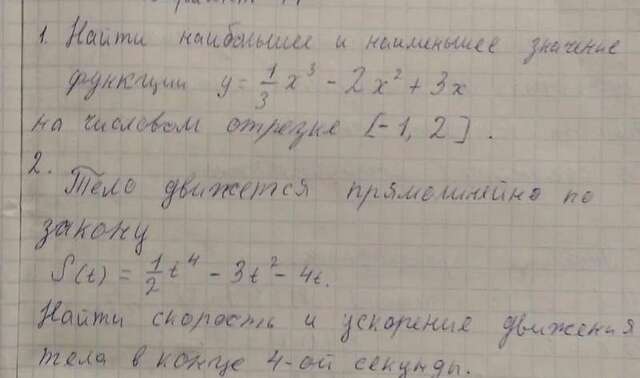 1. Найти наибольшее и наименьшее значение
функции y = 1/3 x³ - 2x² + 3x
на числовом отрезке [-1, 2].
2.
Тело движется прямолинейно по
закону
S(t) = 1/2 t⁴ - 3t² - 4t.
Найти скорость и ускорение движения
тела в конце 4-ой секунды.